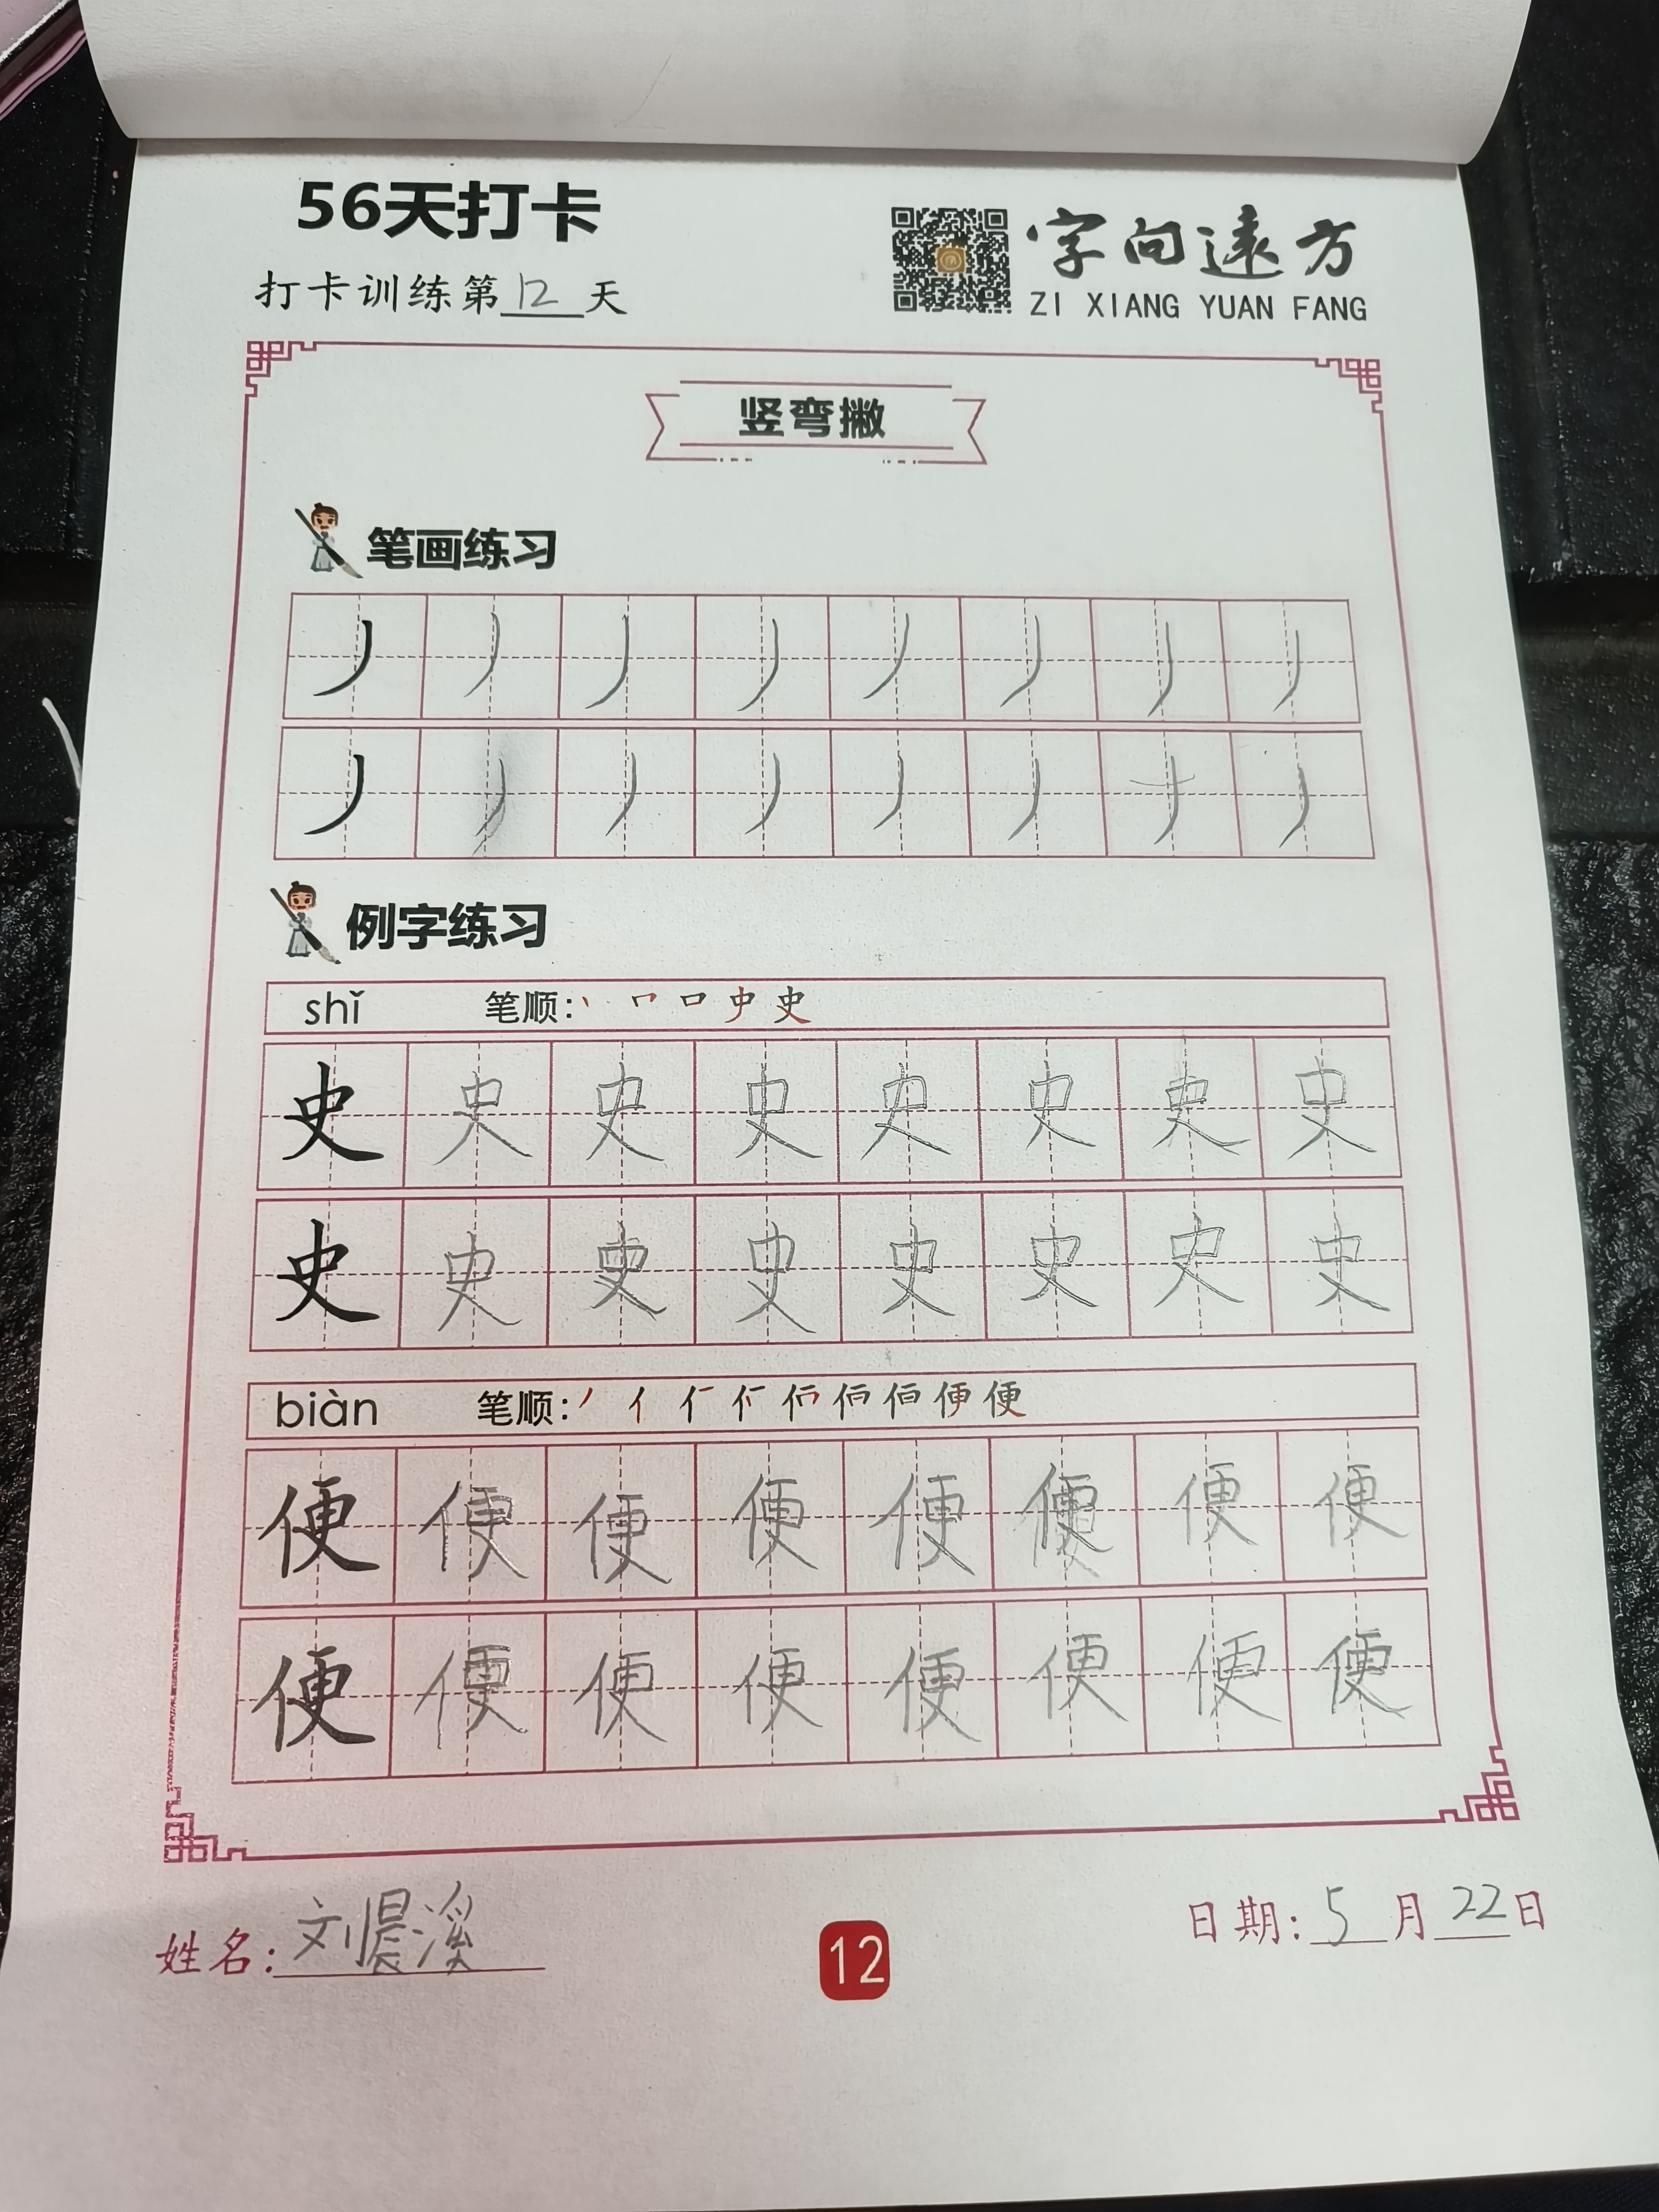 56天打卡
字向遠方
打卡训练第12天
ZI XIANG YUAN FANG
竖弯撇
笔画练习
丿 丿 丿 丿 丿 丿 丿 丿
丿 丿 丿 丿 丿 丿 丿 丿
例字练习
shǐ 笔顺: 史
史 史 史 史 史 史 史 史
史 史 史 史 史 史 史 史
biàn 笔顺: 便
便 便 便 便 便 便 便 便
便 便 便 便 便 便 便 便
姓名:刘晨溪
12
日期:5月22日